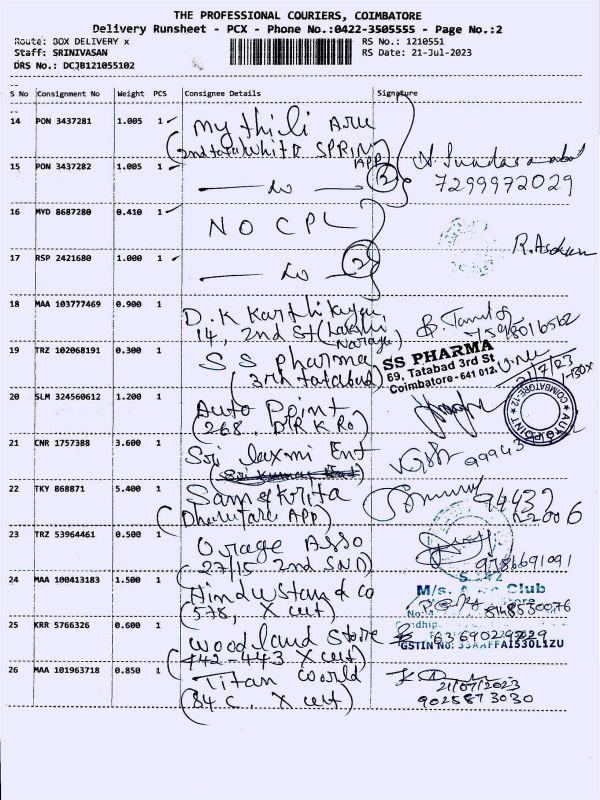 THE PROFESSIONAL COURIERS, COIMBATORE
Delivery Runsheet - PCX - Phone No.:0422-3505555 - Page No.:2
Route: BOX DELIVERY x
RS No.: 1210551
Staff: SRINIVASAN
RS Date: 21-Jul-2023
DRS No.: DCJB121055102
S No Consignment No Weight PCS Consignee Details Signature
14 PON 3437281 1.005 1
My thili Aru
(2nd tatabad White SPRING APP)
15 PON 3437282 1.005 1
— do — (2)
7299972029
16 MYD 8687280 0.410 1
NO CPL
17 RSP 2421680 1.000 1
— do — (2)
18 MAA 103777469 0.900 1
D.K Karthikeyan,
14, 2nd St (Lakshi Narayan)
19 TRZ 102068191 0.300 1
SS Pharma
(3rd tatabad)
SS PHARMA
69, Tatabad 3rd St
Coimbatore - 641 012.
20 SLM 324560612 1.200 1
Auto Point
(268, DR K Ro)
AUTO POINT
COIMBATORE-12
21 CNR 1757388 3.600 1
Sri laxmi Ent
22 TKY 868871 5.400 1
Samskrita
APP)
94432
22006
23 TRZ 53964461 0.500 1
Orage Asso
(27/15 2nd SND)
24 MAA 100413183 1.500 1
Hindustan & co
(578, X cut)
M/s. Club
25 KRR 5766326 0.600 1
Woodland Store
(442-443 X cut)
GSTIN No: 33AAFFA1530L1ZU
26 MAA 101963718 0.850 1
Titan World
(84 C, X cut)
21/07/2023
9025873030